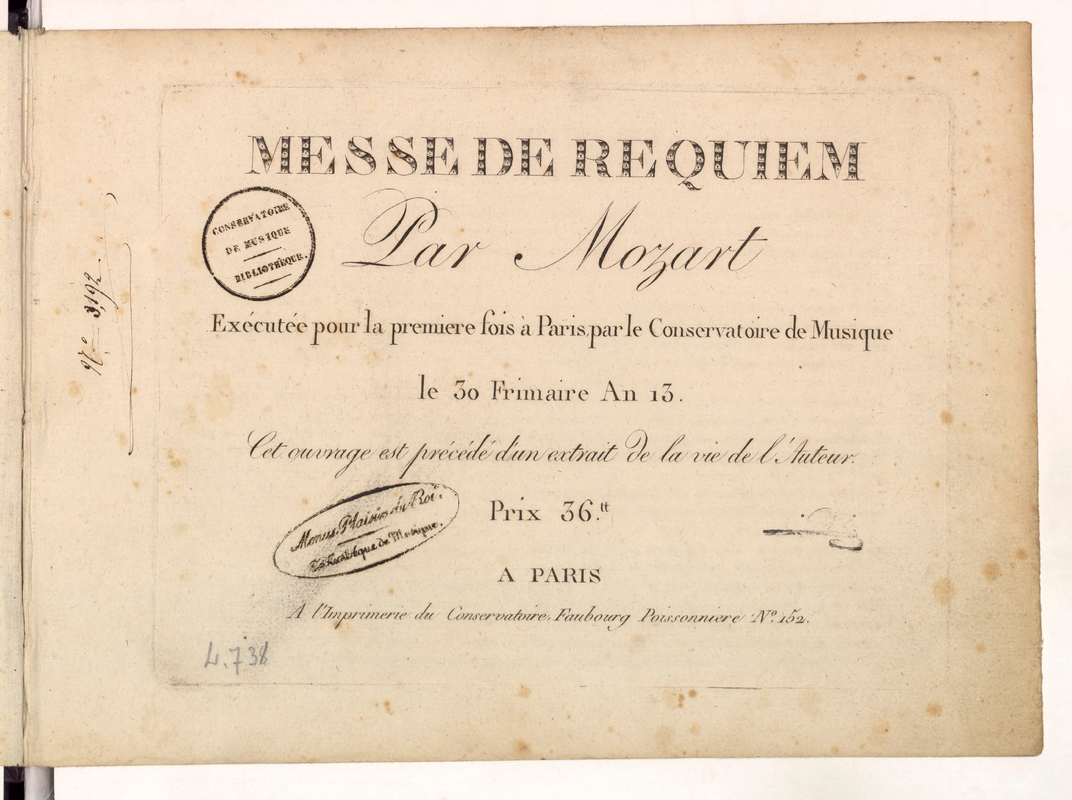 MESSE DE REQUIEM
Par Mozart
CONSERVATOIRE
DE MUSIQUE
BIBLIOTHÈQUE.
N.º 3,192.
Exécutée pour la premiere fois à Paris, par le Conservatoire de Musique
le 30 Frimaire An 13.
Cet ouvrage est précédé d'un extrait de la vie de l'Auteur.
Prix 36.tt
Menus Plaisirs du Roi.
Bibliothèque de Musique.
A PARIS
A l'Imprimerie du Conservatoire, Faubourg Poissonniere Nº. 152.
L.738